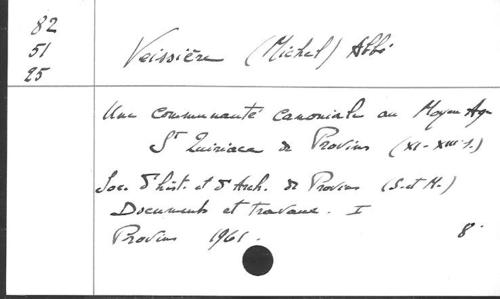 82
51
25
Veissière (Michel) Abbé
Une communauté canoniale au Moyen Age
St Quiriace de Provins (XI-XIIIe s.)
Soc. d'hist. et d'Arch. de Provins (S. et M.)
Documents et travaux. I
Provins 1961. 8°